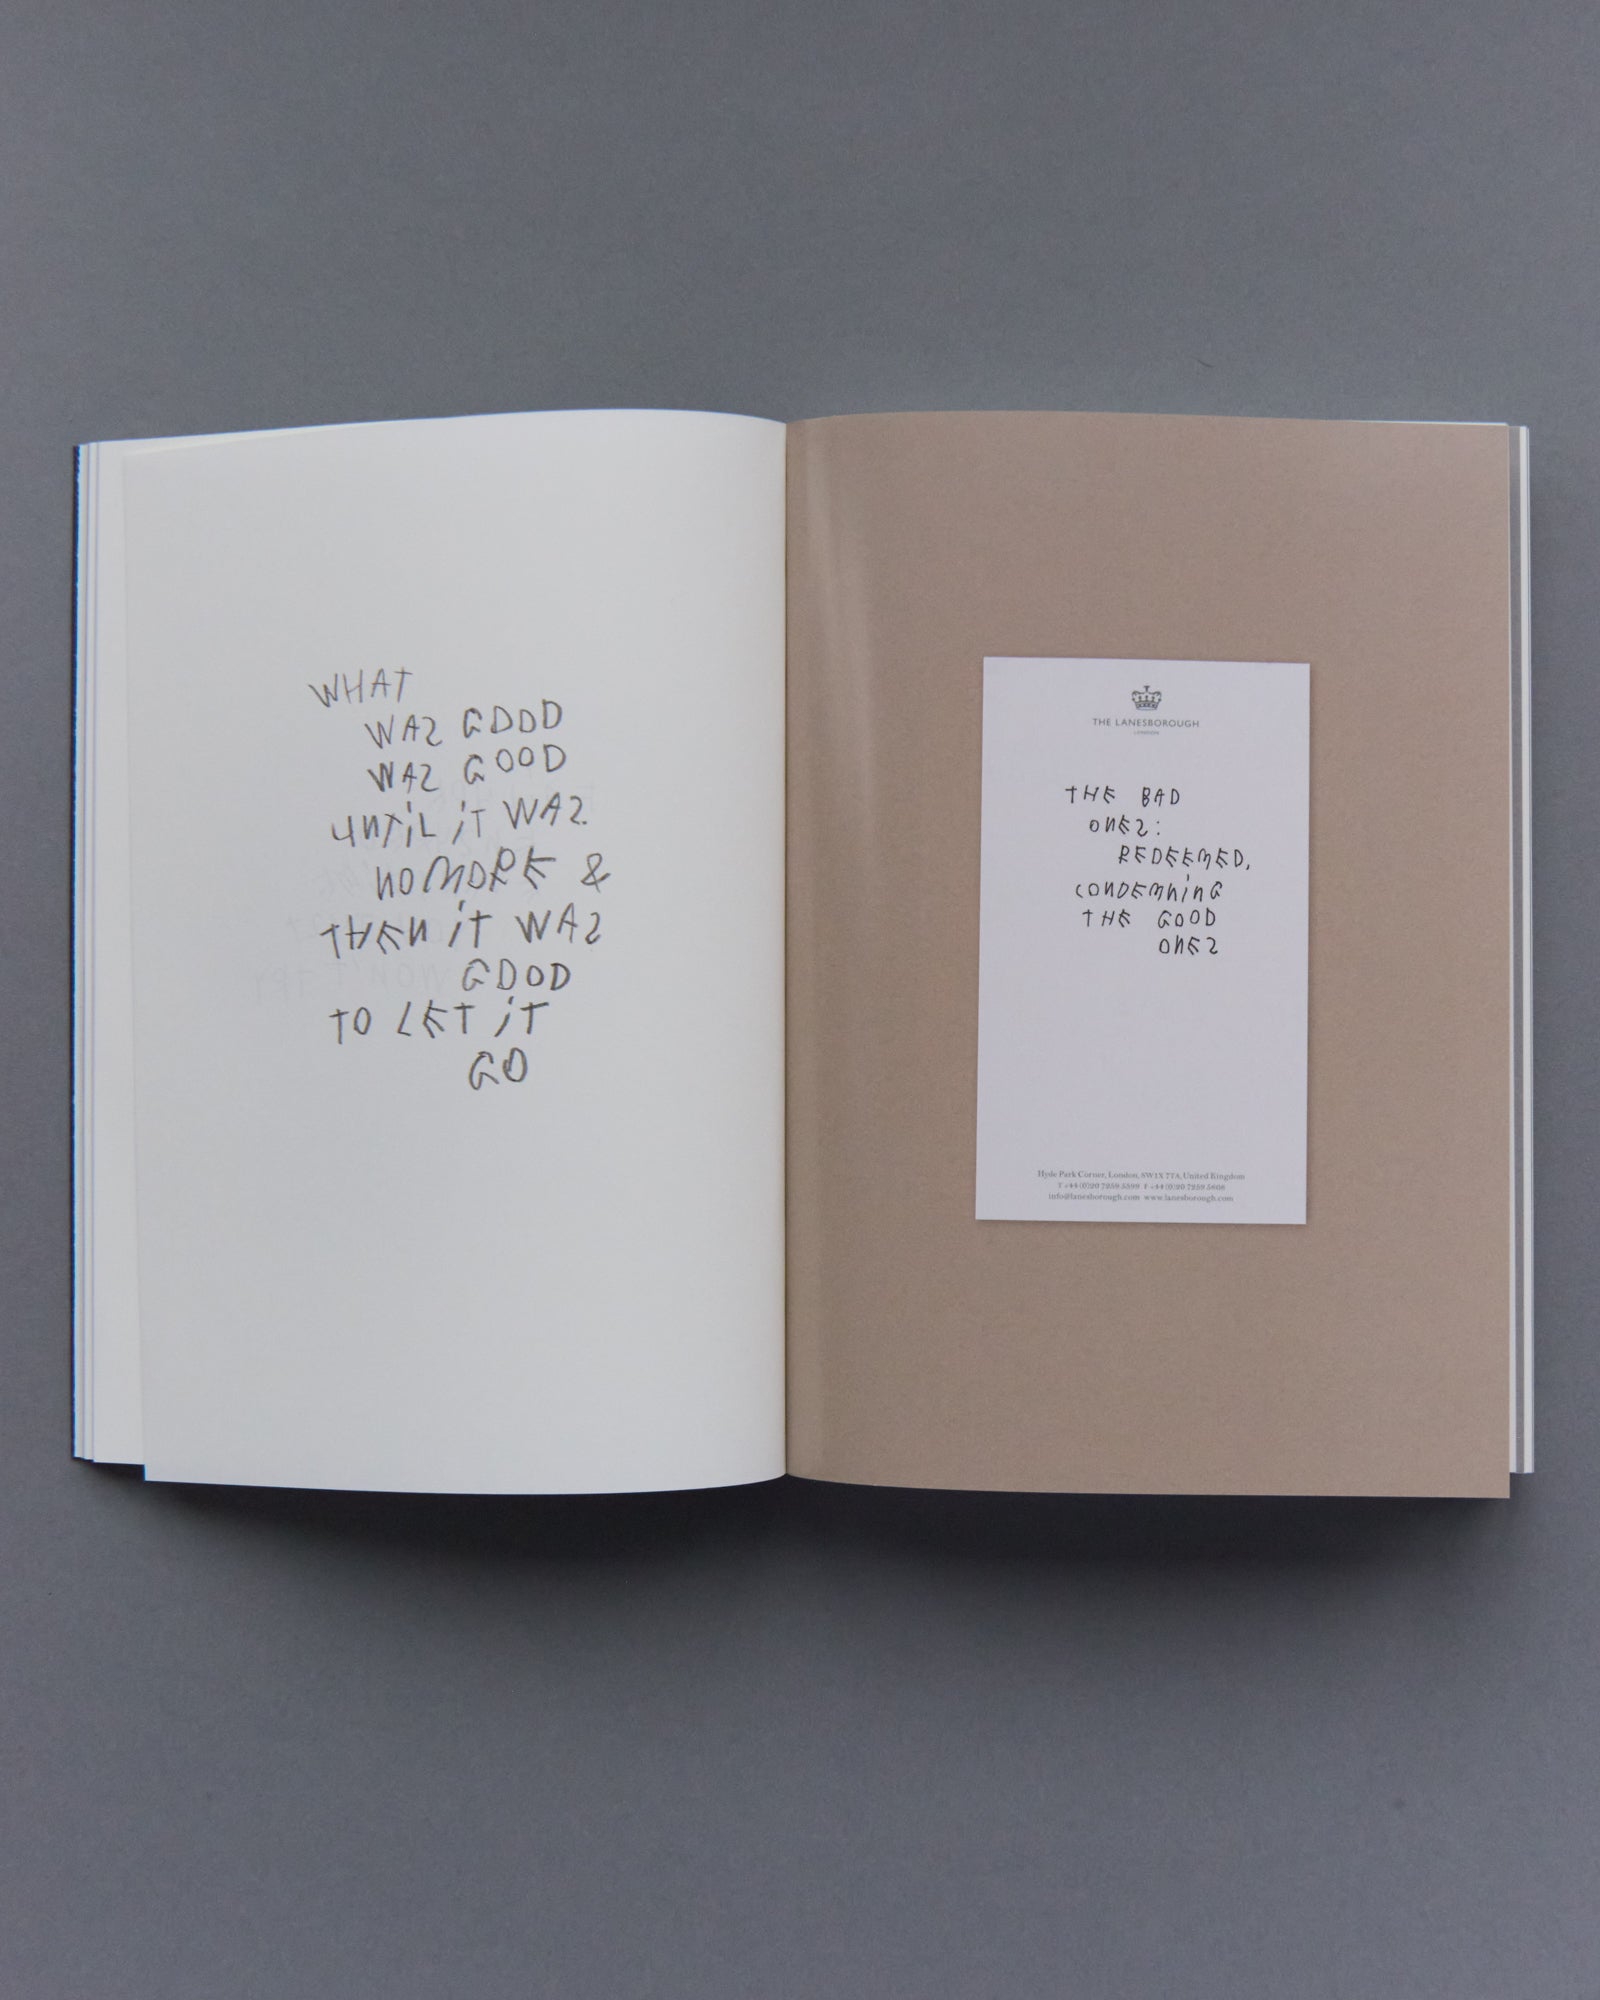 WHAT
WAS GOOD
WAS GOOD
UNTiL iT WAS
NO MORE &
THEN iT WAS
GOOD
TO LET iT
GO
THE LANESBOROUGH
LONDON
THE BAD
ONES:
REDEEMED,
CONDEMNiNG
THE GOOD
ONES
Hyde Park Corner, London, SW1X 7TA, United Kingdom
T +44 (0)20 7259 5599 F +44 (0)20 7259 5606
info@lanesborough.com www.lanesborough.com